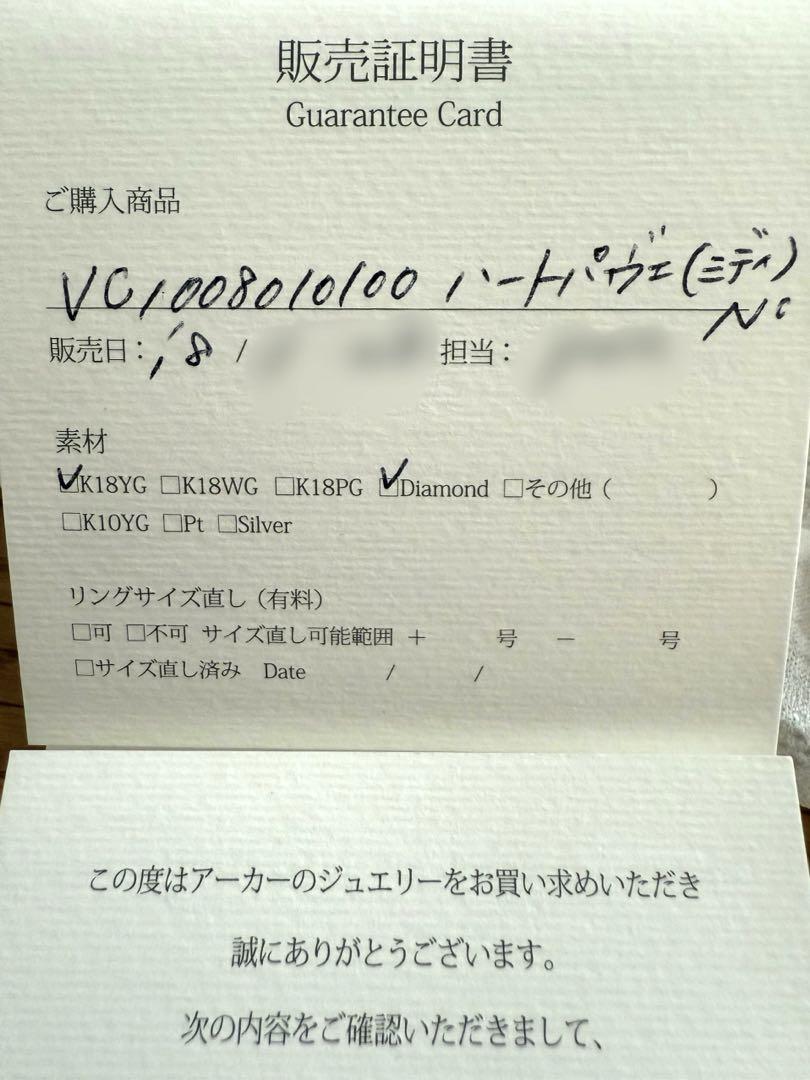 販売証明書
Guarantee Card
ご購入商品
VC1008010100 ハートパヴェ(ミディ)
Nc
販売日： '18 / 担当：
素材
☑K18YG □K18WG □K18PG ☑Diamond □その他（ ）
□K10YG □Pt □Silver
リングサイズ直し（有料）
□可 □不可 サイズ直し可能範囲 ＋ 号 － 号
□サイズ直し済み Date / /
この度はアーカーのジュエリーをお買い求めいただき
誠にありがとうございます。
次の内容をご確認いただきまして、